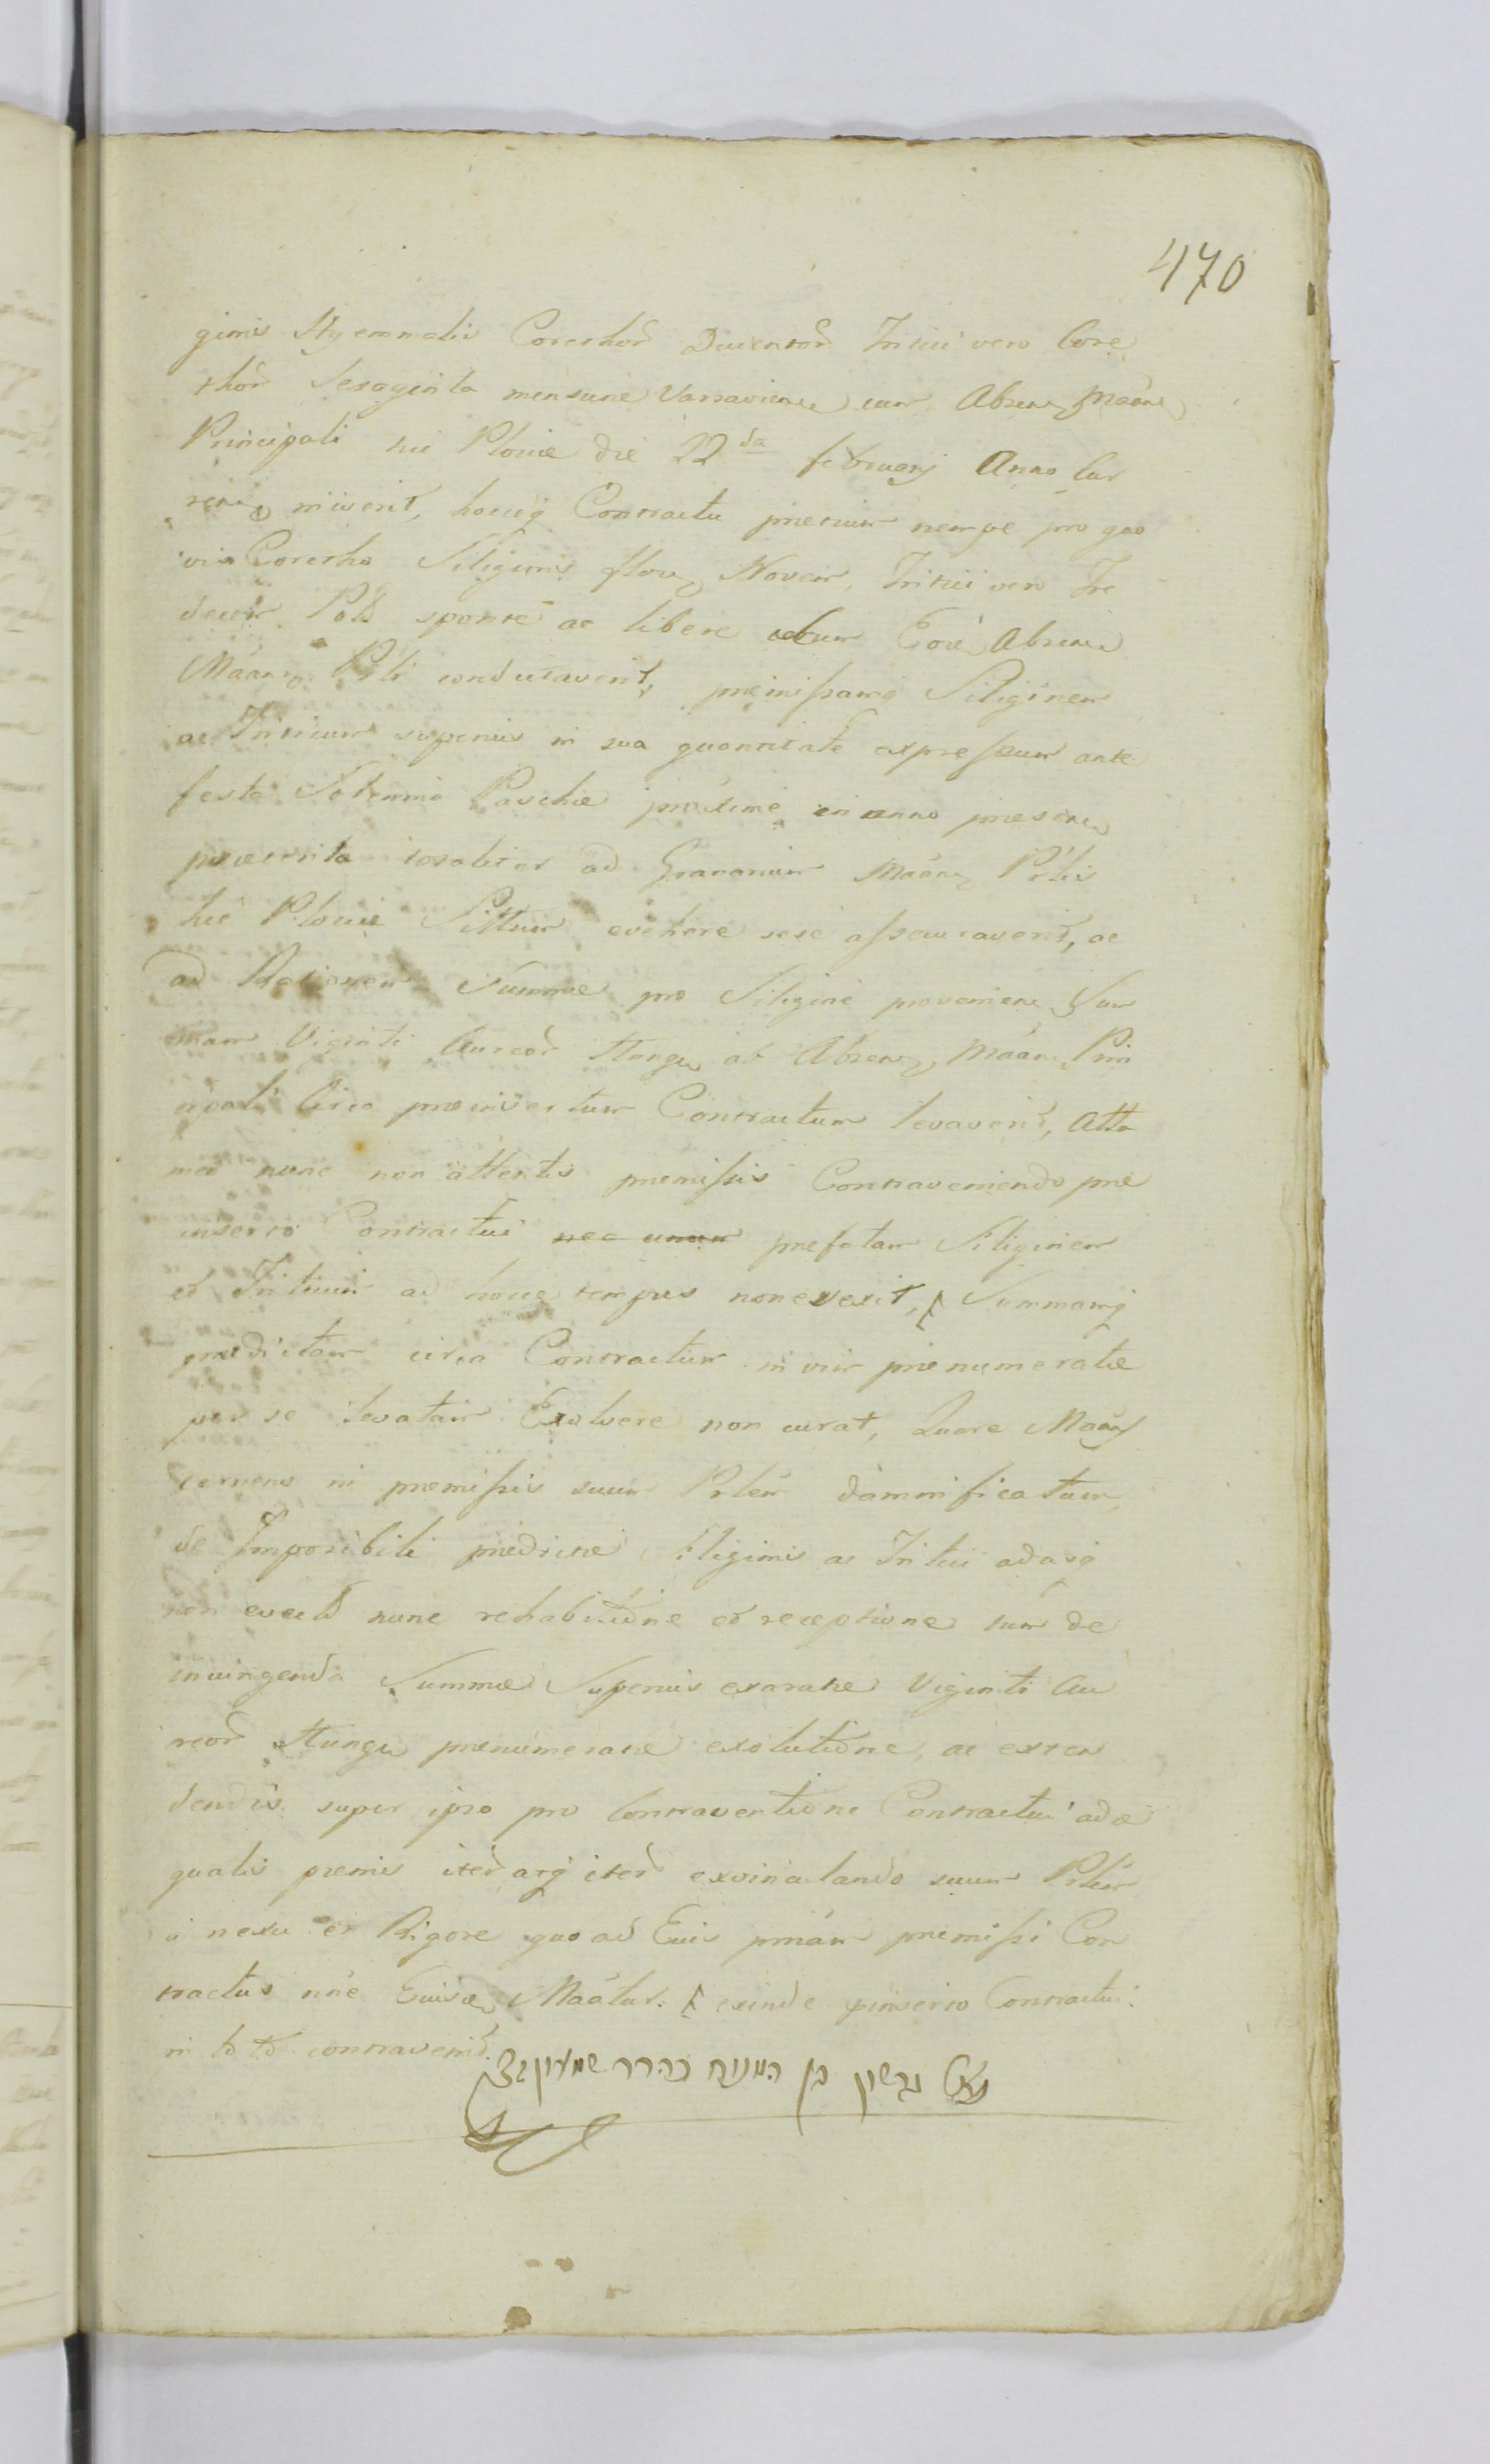 470
ginis Hyemmalis Corethoꝝ Ducentoꝝ Tritici vero Core
thoꝝ Sexaginta mensuræ Varsaviens cum Absene Mãne
Principali hic Plociæ die 22da februarij Anno Cur
rene iniverit, hocq Contractu pretium nempe pro quo
vis Coretho Siliginis flor Novem, Tritici vero Tre
decim Poll sponte ac libere cum Eoð Absene
Mãane Prli condictaverit, præmissamq Siliginem
ac Triticum superius in sua quantitate expressum ante
festa Solemnia Paschæ proxime in anno præsene
præterita totaliter ad Granarium Mãane Prlis
hic Plociæ Sittum evehere sese assecuraverit, ac
ad Rationem Summæ pro Siligine proveniene Sum
mam Viginti Aureoꝝ Hunga ab Absene Mãane Prin
cipali Circa præinsertum Contractum levaverit, Atta
men nunc non attentis præmissis Contraveniendo præ
inserto Contractui nec unum præfatam Siliginem
et Triticum ad hocce tempus non evexit, Summamq
prædictam circa Contractum in vim prænumeratæ
per se levatam Exolvere non curat, Quare Mãans
cernens in præmissis suum Prlem damnificatum,
de Imposibili prædictæ Siliginis ac Tritici adusq
non evecti nunc rehabitione et receptione tum de
incuingenda Summæ Superius exaratæ Viginti Au
reoꝝ Hunga prænumeratæ exolutione, ac exten
dendis super ipso pro Contraventione Contractui adæ
qualis pænis iterð atq iterð exvinculando suum Prlem
a nexu et Rigore quo ad Euis prnãm præmissi Con
tractus nne Euisd Mãatur. exinde pinserto Contractui
in toto contravenit.
נאם גרשון בן המנוח כהרר שמעון זצ